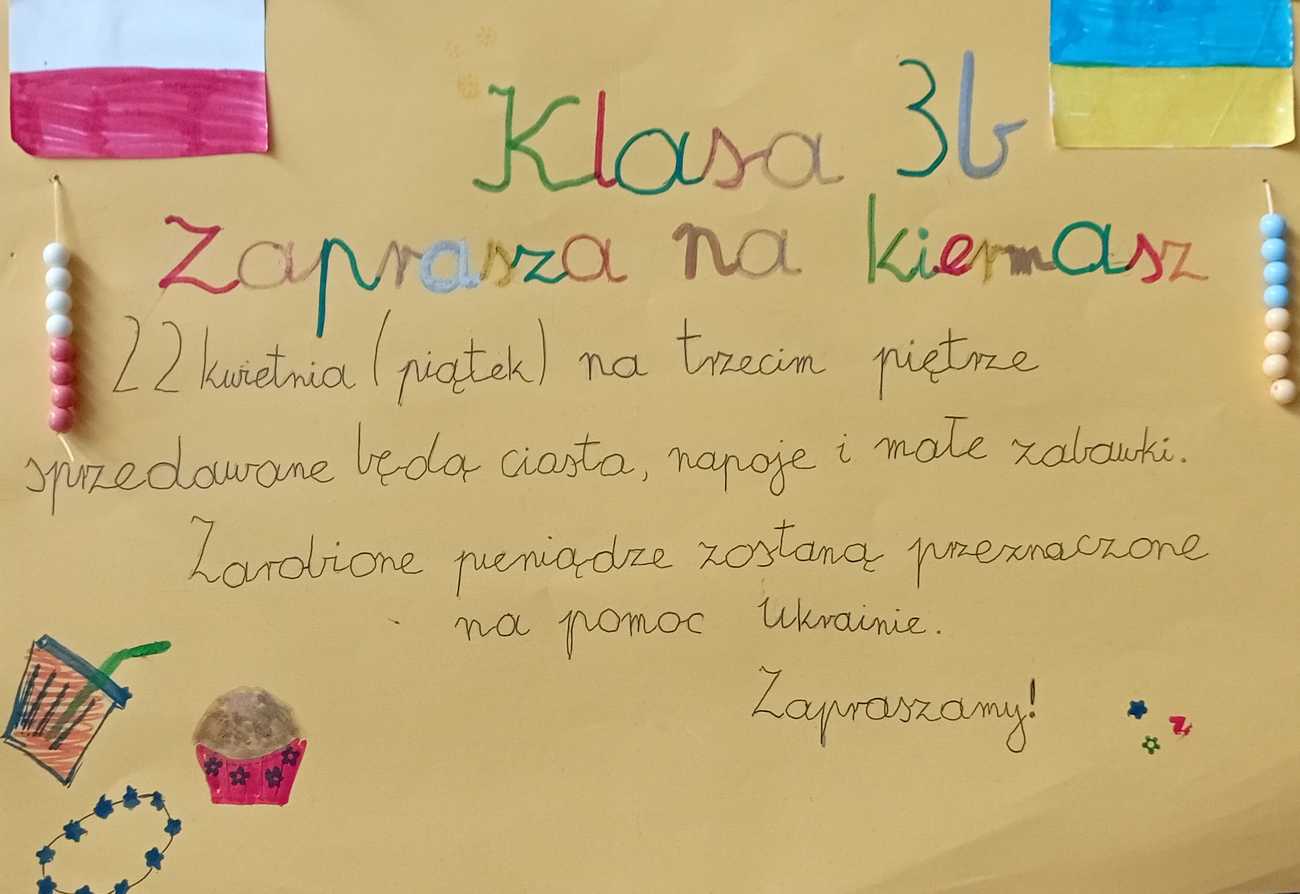 Klasa 3b
Zaprasza na kiermasz
22 kwietnia (piątek) na trzecim piętrze
sprzedawane będą ciasta, napoje i małe zabawki.
Zarobione pieniądze zostaną przeznaczone
na pomoc Ukrainie.
Zapraszamy!